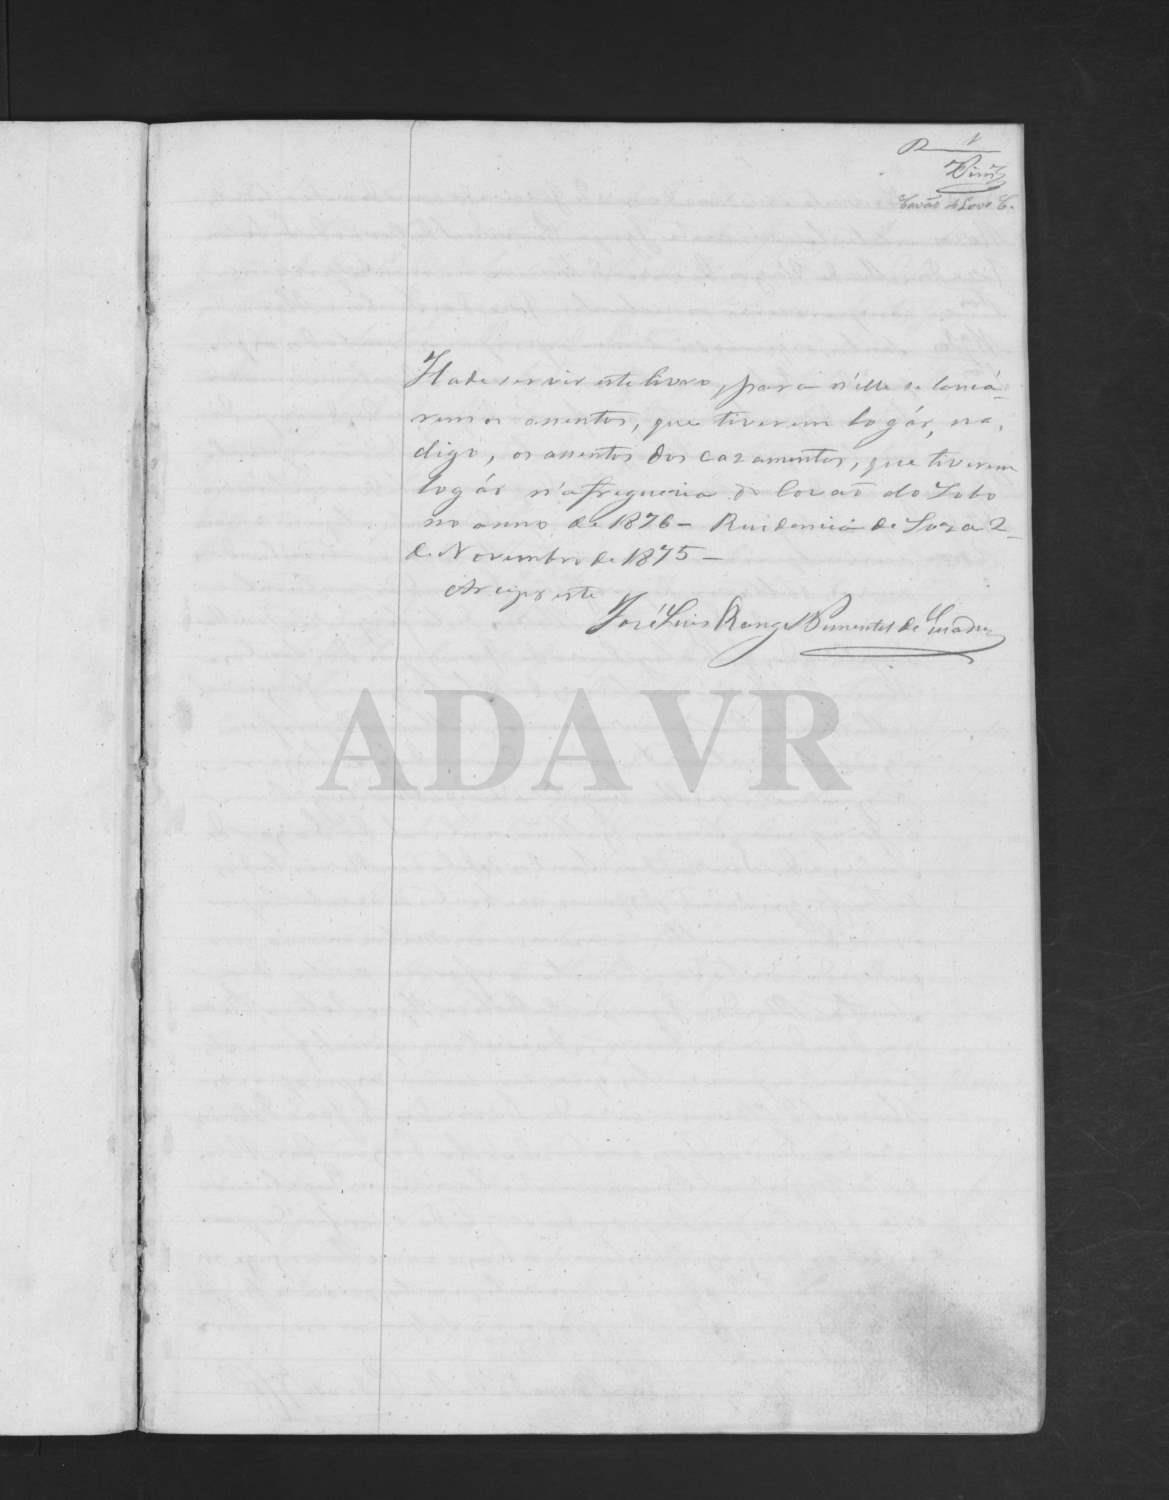 1
Covão do Lobo C.
Hade servir este livro, para n'elle se lançá-
rem os assentos, que tiverem logár, na,
digo, os assentos dos cazamentos, que tiverem
logár n'a freguezia de Covaõ do Lobo
no anno de 1876 - Rezidencia de Soza 2
de Novembro de 1875 -
Arcipreste
José Luis Rangel Pimentel de
ADAVR